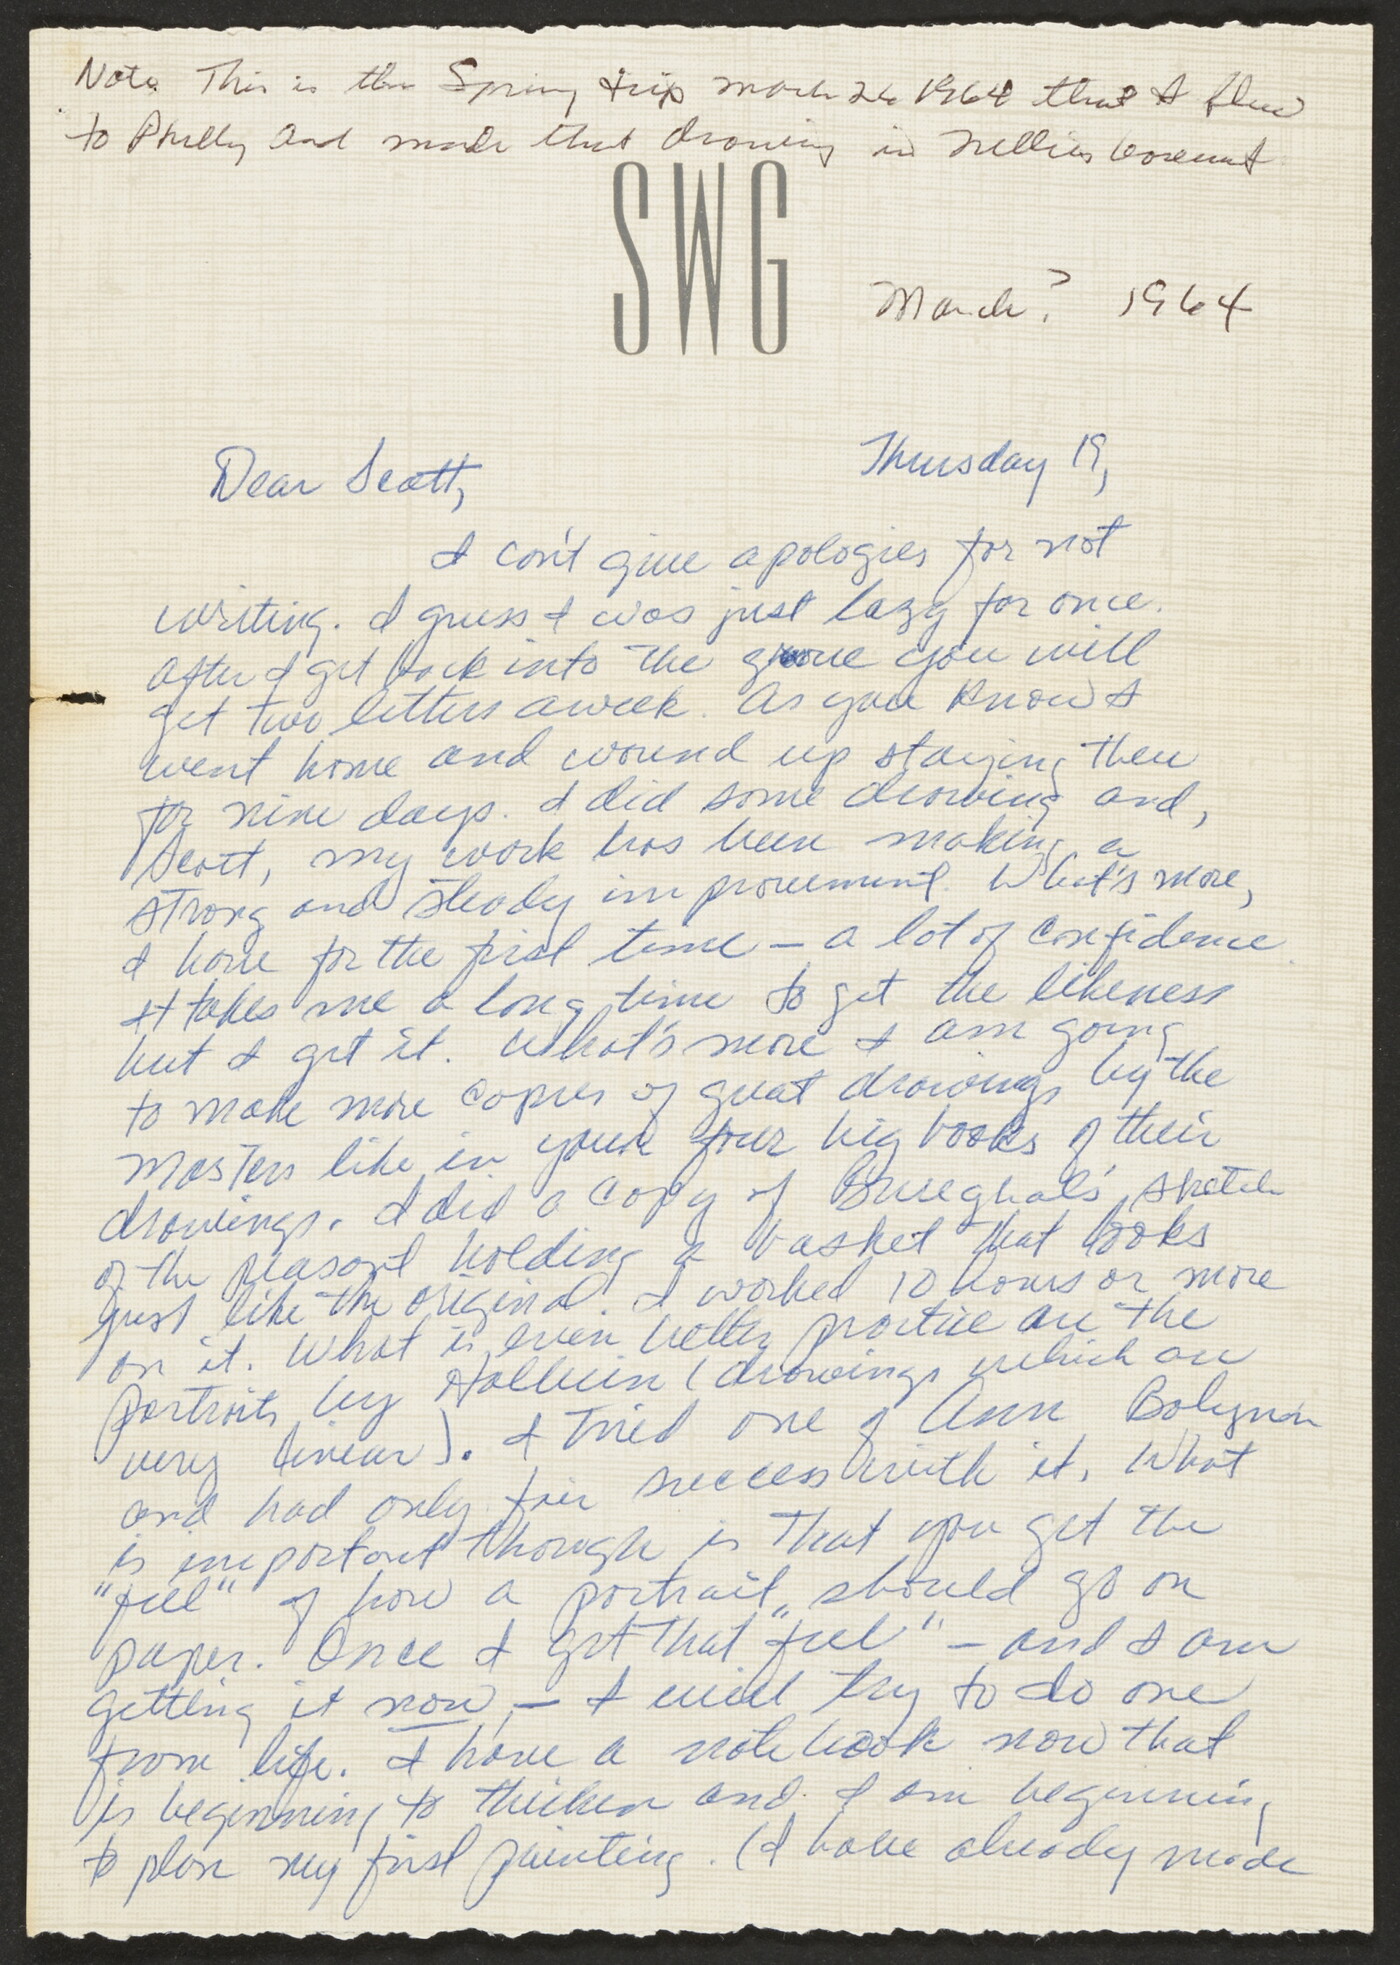 Note This is the Spring trip March 26 1964 that I flew
to Philly and made that drawing in Nellies basement
SWG
March? 1964
Dear Scott,
Thursday 19,
I can't give apologies for not
writing. I guess I was just lazy for once.
After I get back into the groove you will
get two letters a week. As you know I
went home and wound up staying there
for nine days. I did some drawing and,
Scott, my work has been making a
strong and steady improvement. What's more,
I have for the first time – a lot of confidence.
It takes me a long time to get the likeness
but I get it. What's more I am going
to make more copies of great drawings by the
masters like in your four big books of their
drawings. I did a copy of Brueghal's sketch
of the peasant holding a basket that looks
just like the original. I worked 10 hours or more
on it. What is even better practice are the
portraits by Holbein (drawings which are
very linear). I tried one of Ann Bolynn
and had only fair success with it. What
is important though is that you get the
"feel" of how a portrait should go on
paper. Once I get that "feel" – and I am
getting it now – I will try to do one
from life. I have a note book now that
is beginning to thicken and I am beginning
to plan my first painting. (I have already made